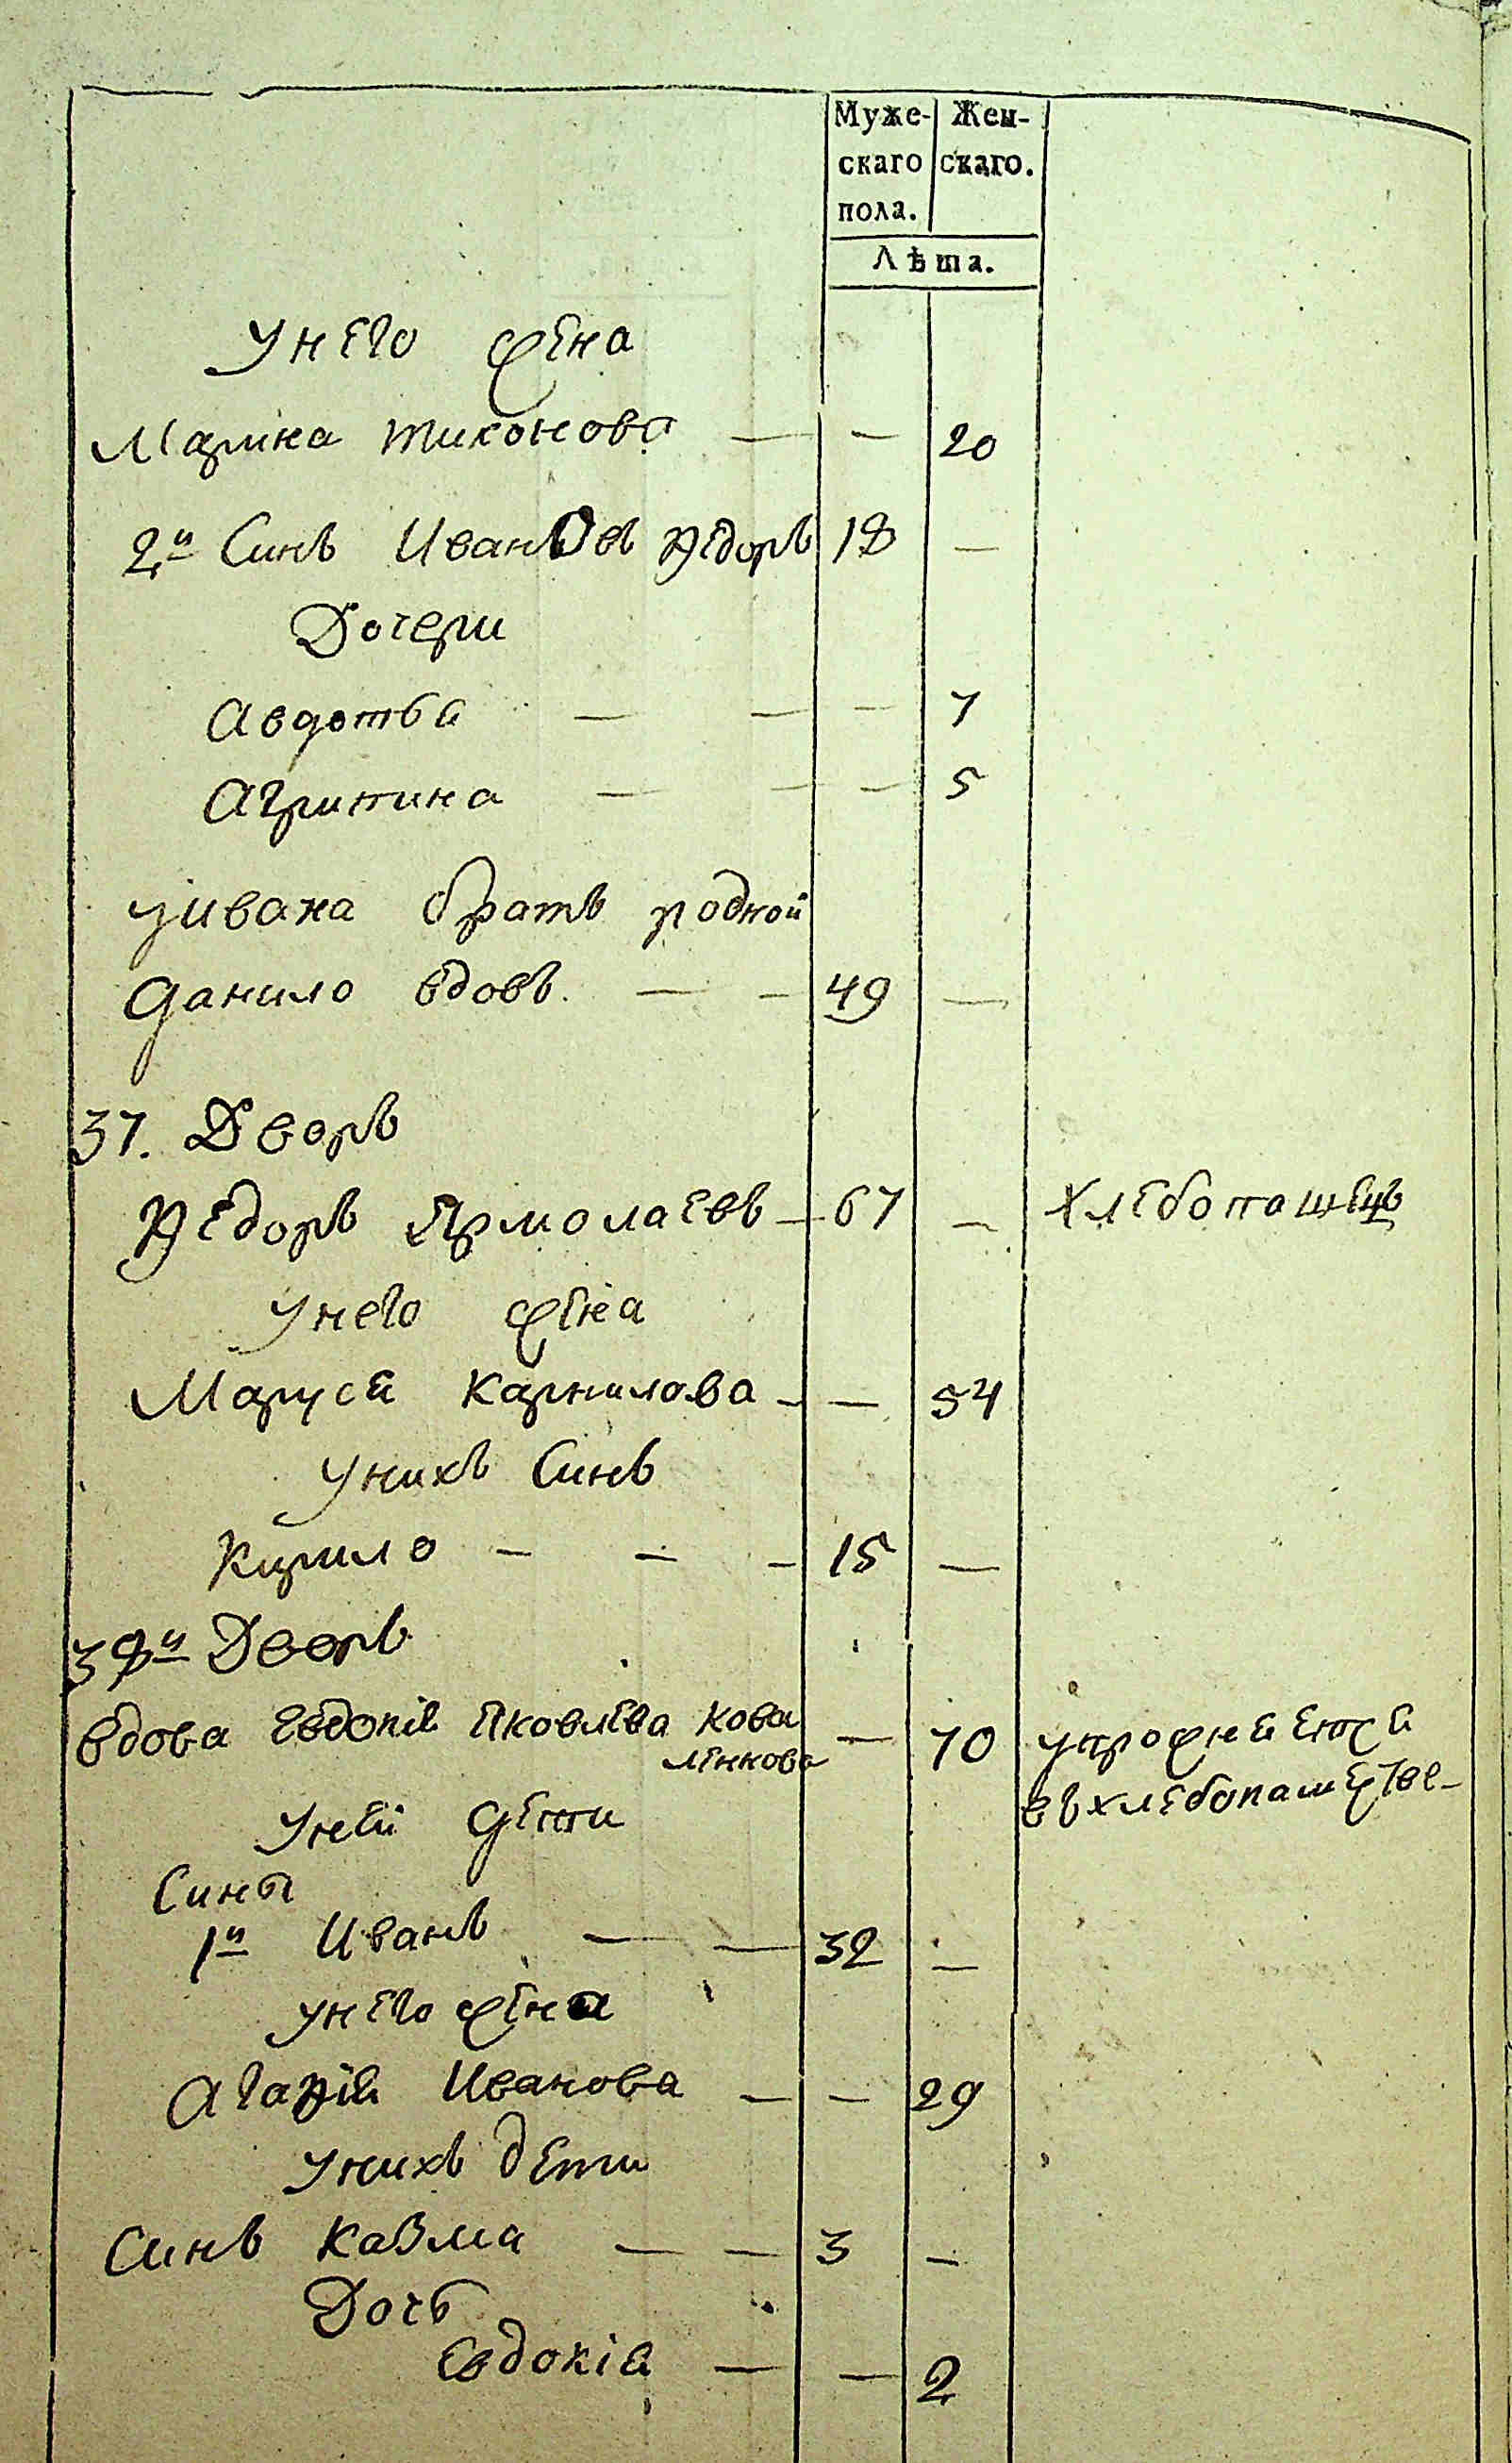 Муже- Жен-
скаго скаго.
пола.
Лѣта.
Унего жена
Марина тихонова — — 20
2й Синъ Ивановъ Федоръ 18 —
Дочери
Авдотья — — — 7
Агрипина — — — 5
уивана братъ родной
данило вдовъ. — — 49 —
37. Дворъ
Федоръ Ярмолаевъ — 67 — Хлебопашецъ
Унего жена
Маруся Карнилова — — 54
Унихъ Синъ
Кирило — — — 15 —
38й Дворъ
Вдова Евдокія Яковлева Кова — 70 упражняется
ленкова
въхлебопашестве
Уней дети
Сины
1й Иванъ — — 32 —
Унего жена
Агафія Иванова — — 29
Унихъ дети
Синъ Казма — — 3 —
Дочь
Евдокія — — 2